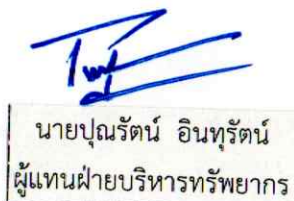 นายปุณรัตน์ อินทุรัตน์
ผู้แทนฝ่ายบริหารทรัพยากร